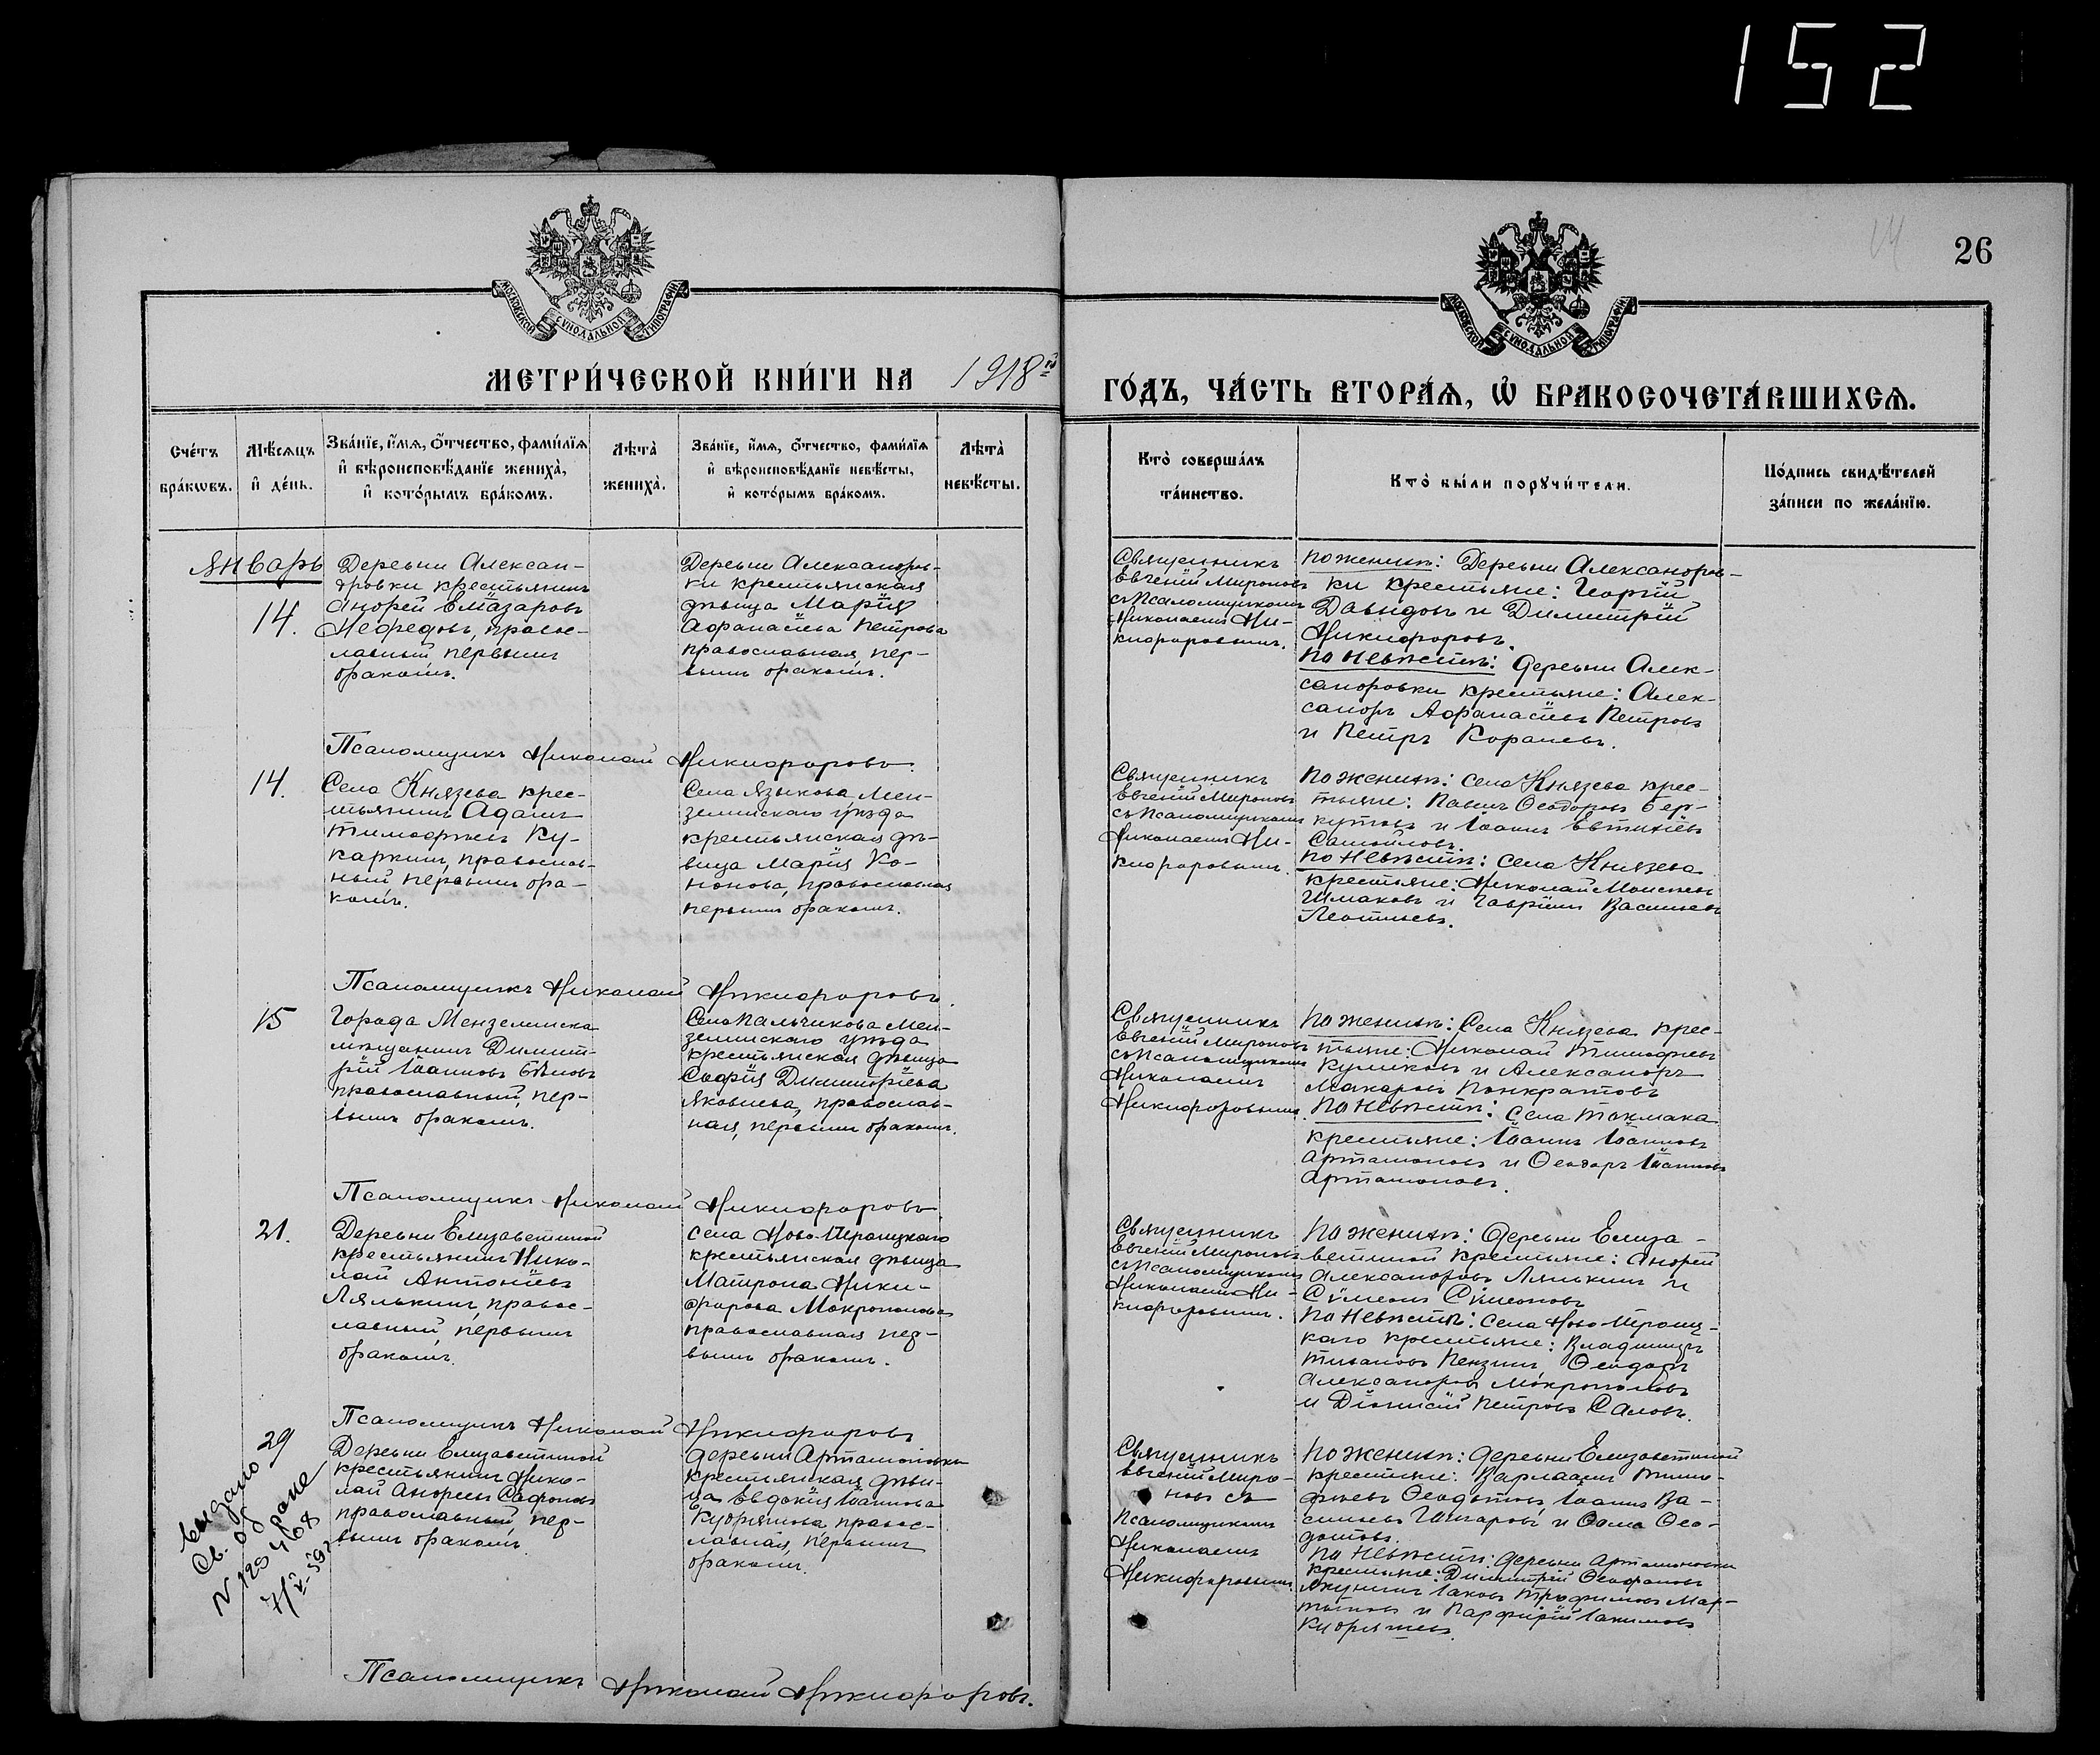 152
14
26
МОСКОВСКОЙ СѴНОДАЛЬНОЙ ТИПОГРАФІИ
МОСКОВСКОЙ СѴНОДАЛЬНОЙ ТИПОГРАФІИ
МЕТРИ́ЧЕСКОЙ КНИ́ГИ НА 1918й
ГО́ДЪ, ЧА́СТЬ ВТОРА́Ѧ, Ѡ҆ БРАКОСОЧЕТА́ВШИХСѦ.
Сче́тъ бра́кѡвъ.
Мѣ́сѧцъ и҆ де́нь.
Зва́нїе, и҆́мѧ, ѻ҆́тчество, фами́лїѧ и҆ вѣроисповѣ́данїе жениха̀, и҆ кото́рымъ бра́комъ.
Лѣта̀ жениха̀.
Зва́нїе, и҆́мѧ, ѻ҆́тчество, фами́лїѧ и҆ вѣроисповѣ́данїе невѣ́сты, и҆ кото́рымъ бра́комъ.
Лѣта̀ невѣ́сты.
Кто̀ соверша́лъ та́инство.
Кто̀ бы́ли порꙋчи́тели.
По́дпись свидѣ́телей за́писи по жела́нїю.
Январь
14.
Деревни Алексан-
дровки крестьянинъ
Андрей Елїазаровъ
Нефедовъ, правос-
лавный первымъ
бракомъ.
Деревни Александров-
ки крестьянская
дѣвица Марїя
Афанасїева Петрова
православная, пер-
вымъ бракомъ.
Священникъ
Евгенїй Мироновъ
съ псаломщикомъ
Николаемъ Ни-
кифоровымъ.
По женихѣ: Деревни Александров-
ки крестьяне: Георгїй
Давыдовъ и Димитрїй
Никифоровъ.
По невѣстѣ: Деревни Алек-
сандровки крестьяне: Алек-
сандръ Афанасїевъ Петровъ
и Петръ
Псаломщикъ Николай Никифоровъ.
14.
Села Князева крес-
тьянинъ Адамъ
Тимофеевъ Ку-
каркинъ, православ-
ный, первымъ бра-
комъ.
Села Языкова Мен-
зелинскаго уѣзда
крестьянская дѣ-
вица Марїя Ко-
нонова, православная
первымъ бракомъ.
Священникъ
Евгенїй Мироновъ
съ псаломщикомъ
Николаемъ Ни-
кифоровымъ.
По женихѣ: Села Князева крес-
тьяне: Павелъ Ѳеодоровъ Бер-
кутовъ и Іоаннъ Евтихїевъ
Самойловъ.
По невѣстѣ: Села Князева
крестьяне: Николай Моисеевъ
Шмаковъ и Гаврїилъ Васильевъ
Леонтьевъ.
Псаломщикъ Николай Никифоровъ.
15
Города Мензелинска
мѣщанинъ Димит-
рїй Іоанновъ Бѣловъ
православный, пер-
вымъ бракомъ.
Села Пальчикова Мен-
зелинскаго уѣзда
крестьянская дѣвица
Софїя Димитрїева
Яковлева, православ-
ная, первымъ бракомъ.
Священникъ
Евгенїй Мироновъ
съ псаломщикомъ
Николаемъ
Никифоровымъ.
По женихѣ: Села Князева крес-
тьяне: Николай Тимофеевъ
Куликовъ и Александръ
Макаровъ Панкратовъ
По невѣстѣ: Села Токмака
крестьяне: Іоаннъ Іоанновъ
Артамоновъ и Ѳеодоръ Іоанновъ
Артамоновъ.
Псаломщикъ Николай Никифоровъ
21.
Деревни Елизаветиной
крестьянинъ Нико-
лай Антонїевъ
Лялькинъ, правос-
лавный, первымъ
бракомъ.
Села Ново-Троицкаго
крестьянская дѣвица
Матрона Ники-
форова Мокрополова
православная пер-
вымъ бракомъ.
Священникъ
Евгенїй Мироновъ
съ псаломщикомъ
Николаемъ Ни-
кифоровымъ.
По женихѣ: Деревни Елиза-
ветиной крестьяне: Андрей
Александровъ Лялькинъ и
Сѵмеонъ Сѵмеоновъ
По невѣстѣ: Села Ново-Троиц-
каго крестьяне: Владимиръ
Пензинъ, Ѳеодоръ
Александровъ Мокрополовъ
и Дїонисїй Петровъ Саловъ.
Псаломщикъ Николай Никифоровъ
29
Выдано
Св. об
N 120468
Деревни Елизаветиной
крестьянинъ Нико-
лай Андреевъ Сафоновъ
православный, пер-
вымъ бракомъ
Деревни Артамоновки
крестьянская дѣви-
ца Евдокїя Іоаннова
Кудряшова правос-
лавная, первымъ
бракомъ.
Священникъ
Евгенїй Миро-
новъ съ
псаломщикомъ
Николаемъ
Никифоровымъ
По женихѣ: Деревни Елизаветиной
крестьяне: Варлаамъ Тимо-
феевъ Ѳеодотовъ, Іоаннъ Ва-
сильевъ и Ѳома Ѳео-
дотовъ.
По невѣстѣ: Деревни Артамоновки
крестьяне: Димитрїй Ѳеофановъ
Якунинъ Іаковъ Трофимовъ Мар-
тыновъ и Парфирїй Іакимовъ
Кудряшевъ.
Псаломщикъ Николай Никифоровъ.